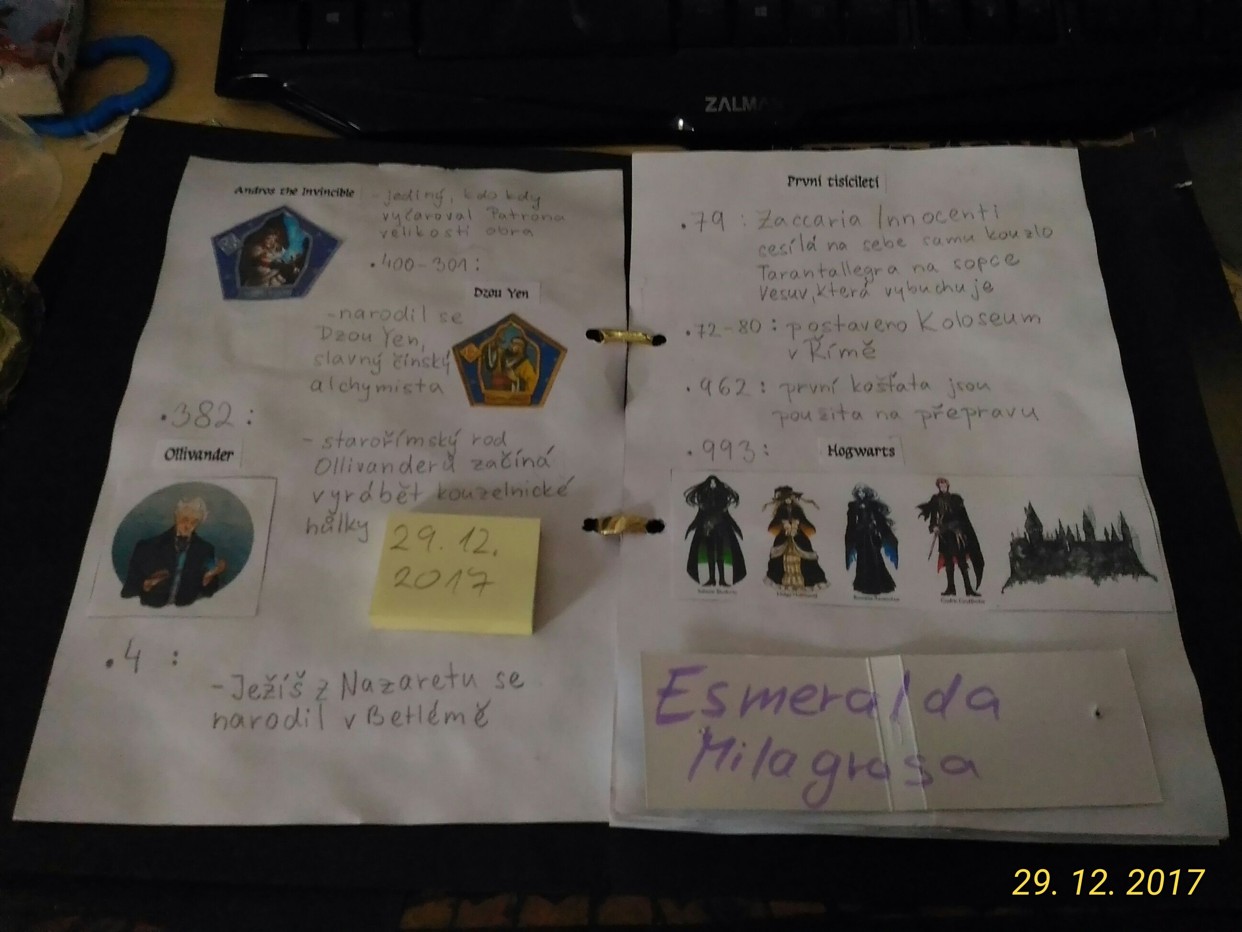 ZALMA
Andros the Invincible
- jediný, kdo kdy
vyčaroval Patrona
velikosti obra
• 400-301:
Dzou Yen
- narodil se
Dzou Yen,
slavný čínský
alchymista
• 382:
Ollivander
- starořímský rod
Ollivanderů začíná
vyrábět kouzelnické
hůlky
29. 12.
2017
• 4 :
- Ježíš z Nazaretu se
narodil v Betlémě
První tisíciletí
• 79 : Zaccaria Innocenti
sesílá na sebe samu kouzlo
Tarantallegra na sopce
Vesuv, která vybuchuje
• 72-80: postaveno Koloseum
v Římě
• 962: první košťata jsou
použita na přepravu
• 993:
Hogwarts
Esmeralda
Milagrosa
29. 12. 2017